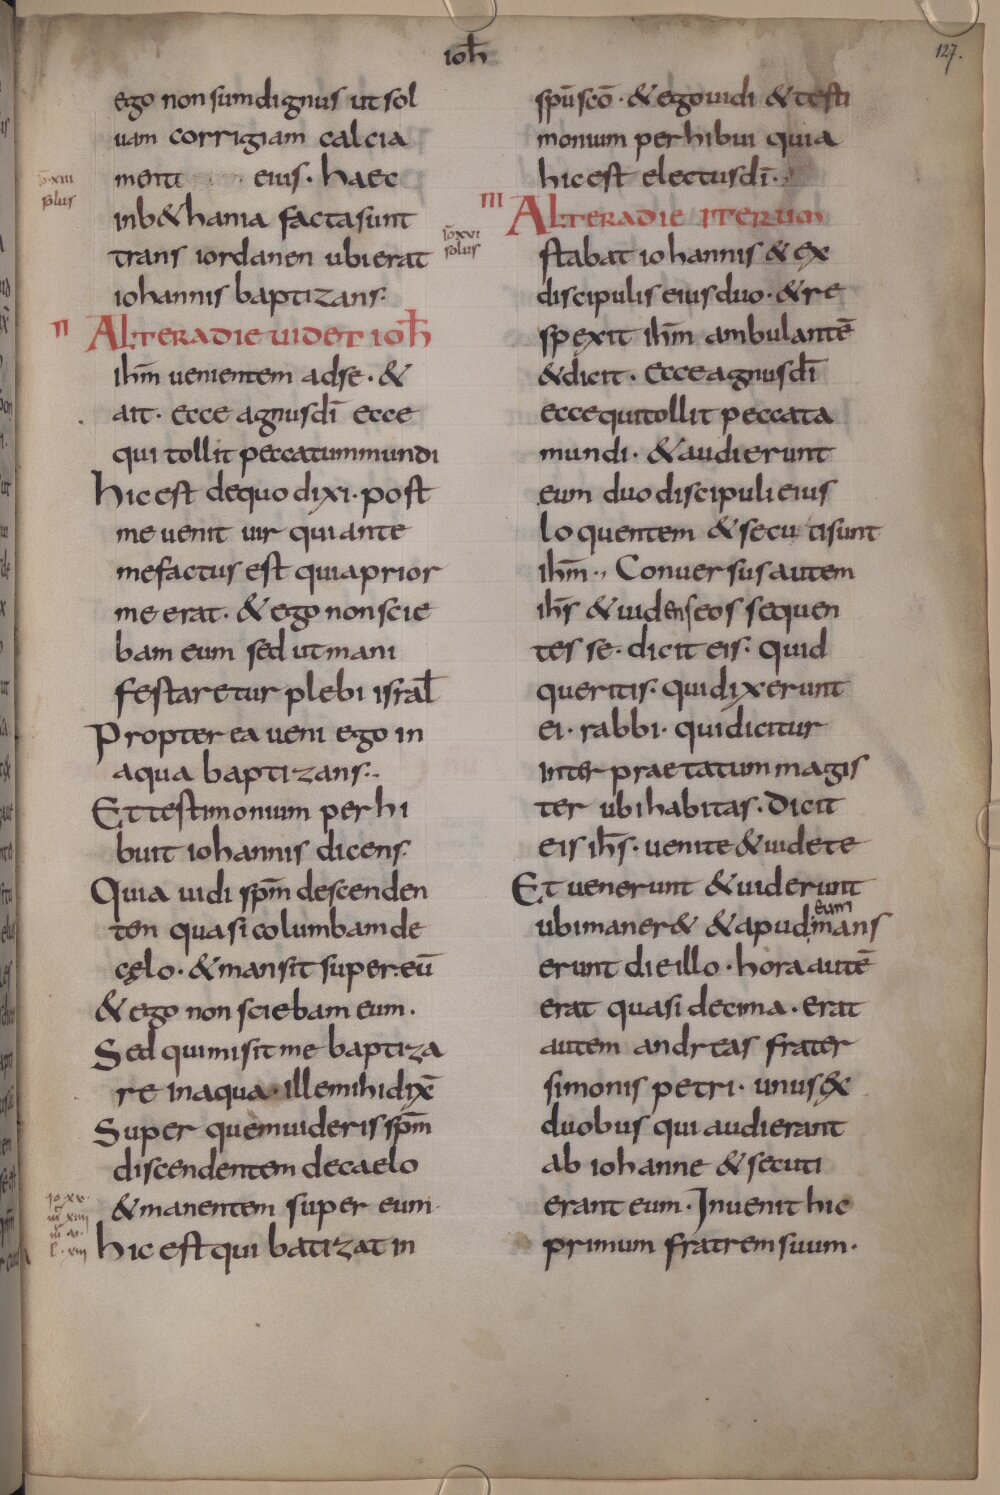 ioh̄
127.
ego non sum dignus ut sol
uam corrigiam calcia
menti eius · haec
in b&hania facta sunt
trans iordanen ubi erat
iohannis baptizans·
iō·xiii
plus
II
ALTERA DIE UIDET IOH̄
ih̄m uenientem ad se · &
ait · ecce agnus dī ecce
qui tollit peccatum mundi
hic est de quo dixi · post
me uenit uir qui ante
me factus est quia prior
me erat · & ego non scie
bam eum sed ut mani
festaretur plebi isral̄
Propter ea ueni ego in
aqua baptizans·.
Et testimonium perhi
buit iohannis dicens·
Quia uidi sp̄m descenden
tem quasi columbam de
cęlo · & mansit super eū
& ego non sciebam eum ·
Sed qui misit me baptiza
re in aqua · ille mihi dix̄
Super quem uideris sp̄m
discendentem de caelo
& manentem super eum·
hic est qui batizat in
spū scō · & ego uidi & testi
monium perhibui quia
hic est electus dī·
III
ALTERA DIE ITERUM
iō xvi
solus
stabat iohannis & ex
discipulis eius duo · & re
spexit ih̄m ambulantē
& dicit · Ecce agnus dī
ecce qui tollit peccata
mundi · & audierunt
eum duo discipuli eius
loquentem & secuti sunt
ih̄m ·, Conuersus autem
ih̄s & uidens eos sequen
tes se · dicit eis · Quid
queritis · qui dixerunt
ei · rabbi · qui dicitur
inter praetatum magis
ter ubi habitas · Dicit
eis ih̄s · uenite & uidete
Et uenerunt & uiderunt
ubi maner& & apud eum mans
erunt die illo · hora autē
erat quasi decima · erat
autem andreas frater
simonis petri · unus ex
duobus qui audierant
ab iohanne & secuti
erant eum · Inuenit hic
primum fratrem suum ·